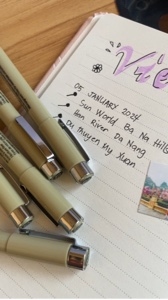 Vie
05 JANUARY 2024
Sun World Ba Na Hills
Han River Da Nang
Du thuyen My Xuan